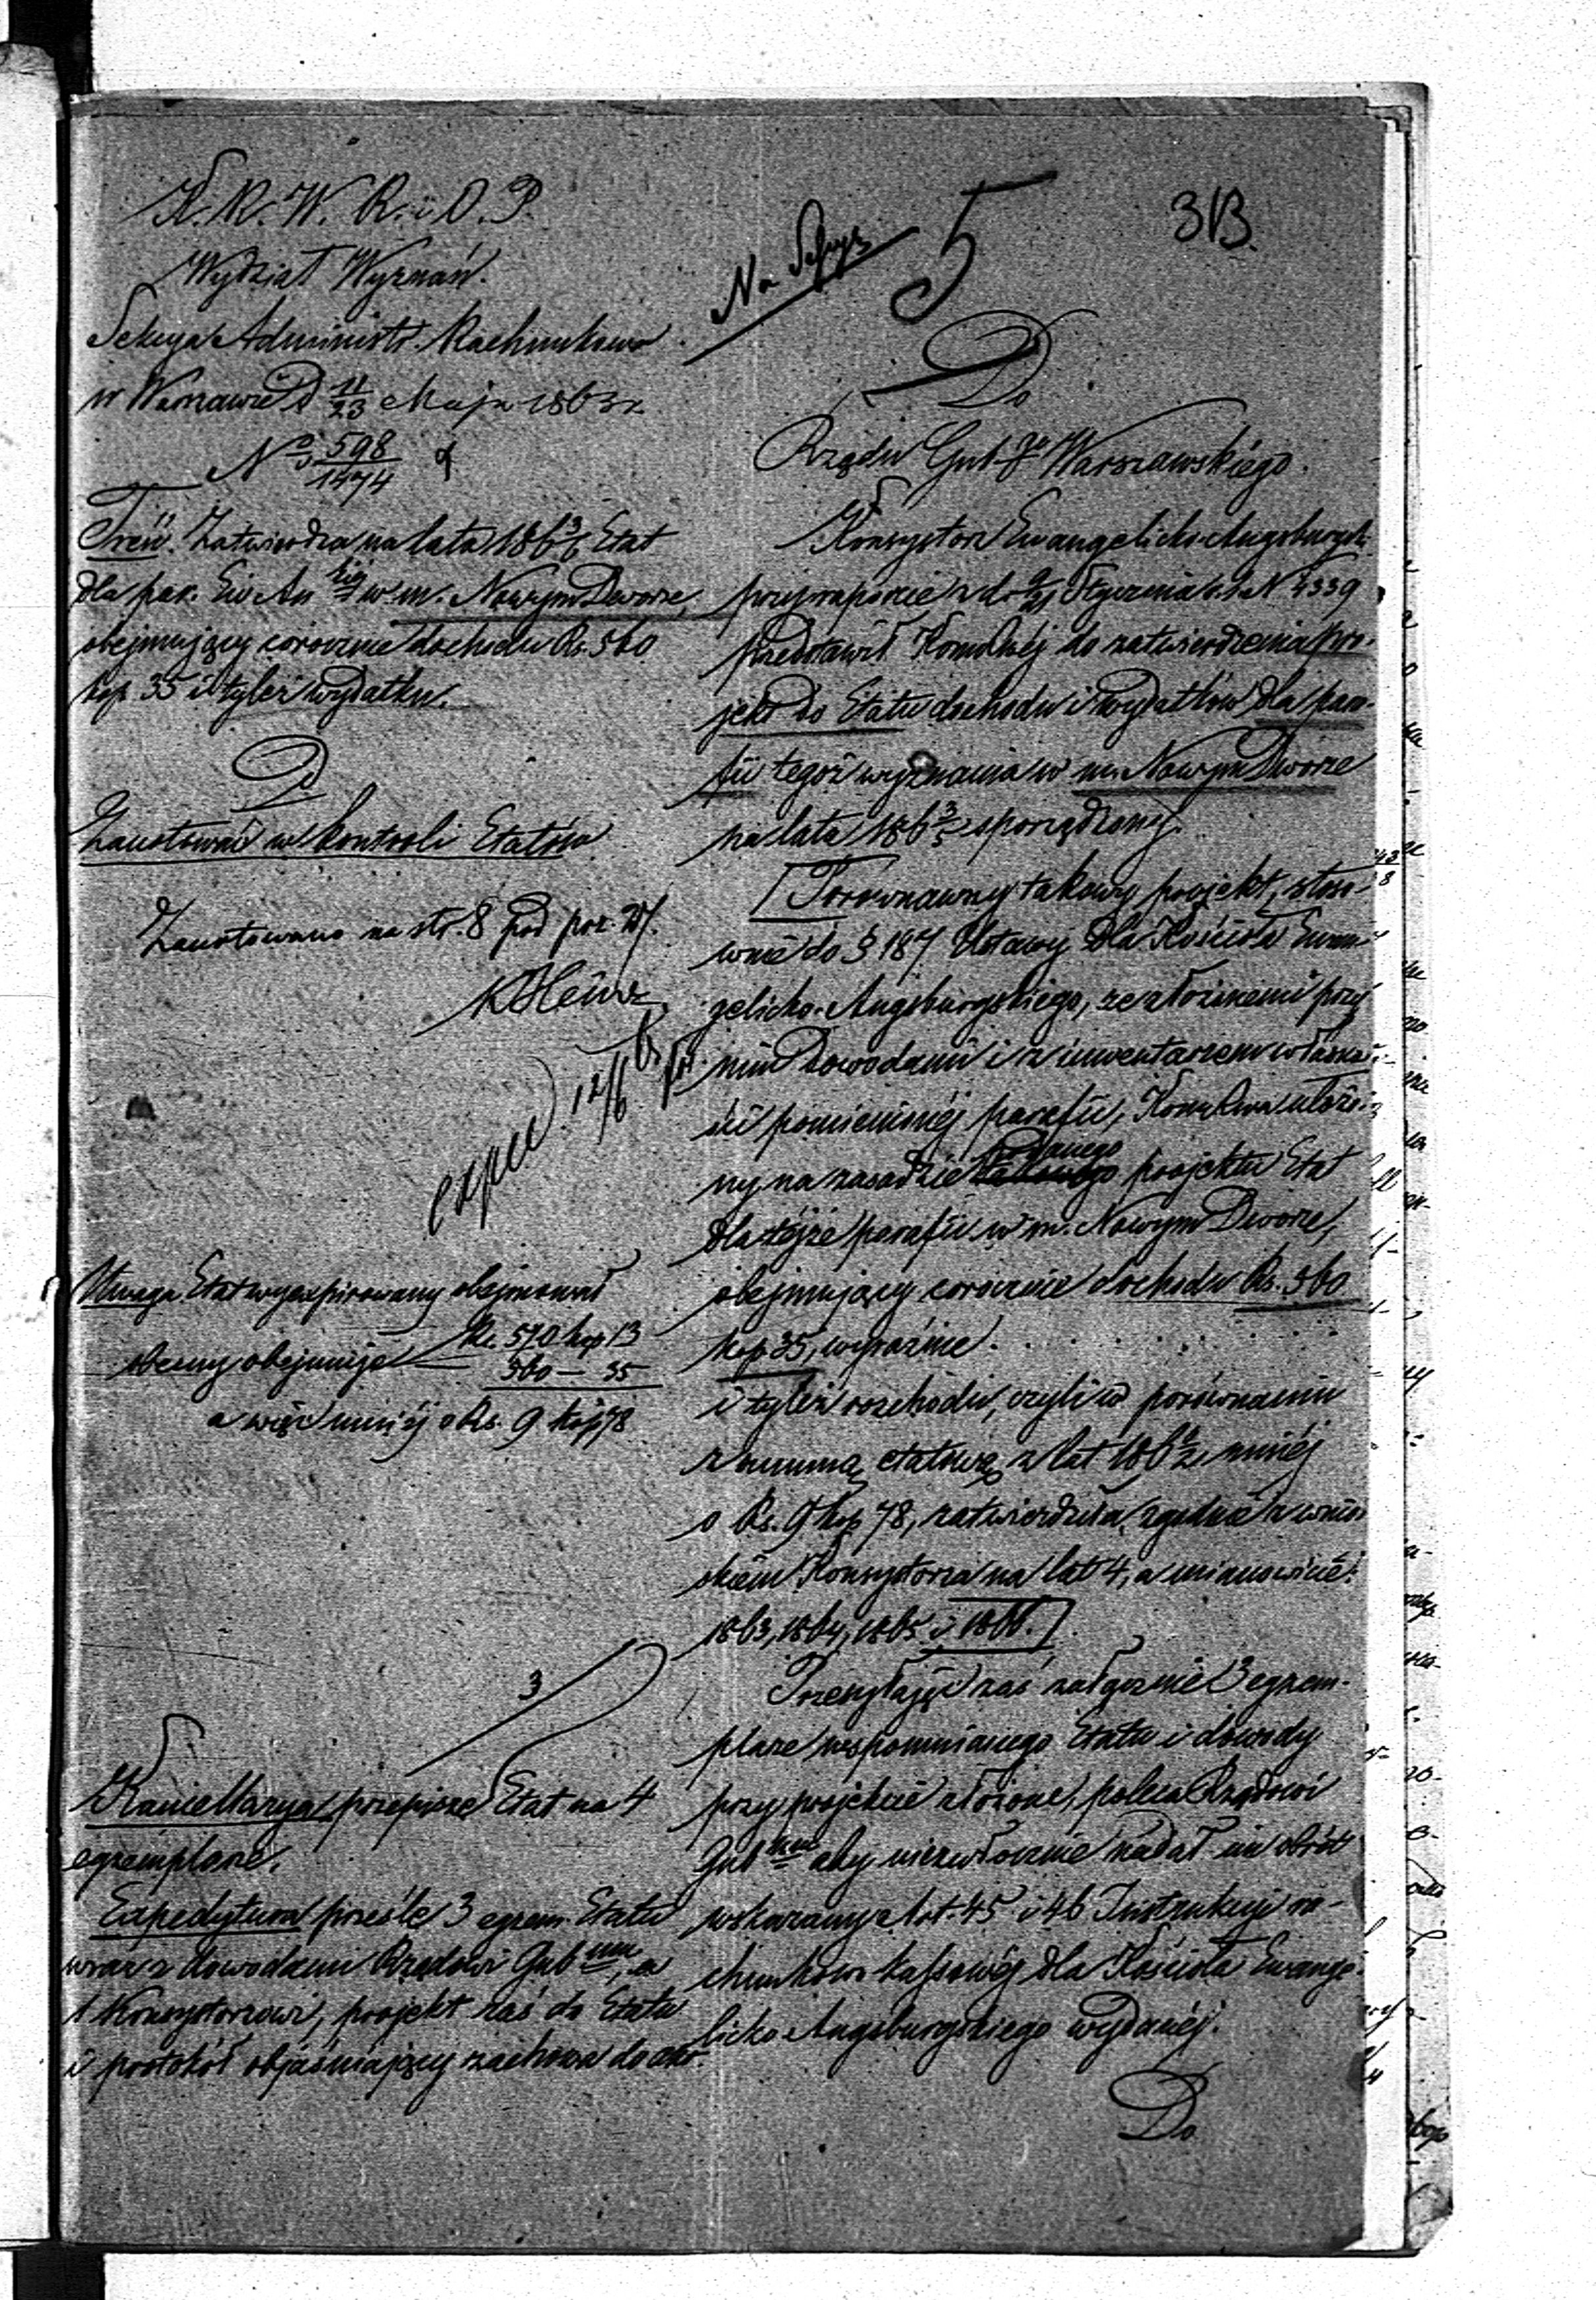 313.
5
K. R. W. R. i O. P.
Wydział Wyznań.
Sekcya Administr. Rachunkowa
w Warszawie D 11/23 Maja 1863 r.
No 598/1474
Treść. Zatwierdza na lata 186 3/6 Etat
dla par. Ew. Au kiej w m. Nowym Dworze,
obejmujący corocznie dochodu Rs. 560
kop. 35 i tyleż wydatku.
D
Zanotować w kontroli Etatów
Zanotowano na str. 8 pod poz. 27.
exped. 12/6
Uwaga. Etat wyexpirowany obejmował
Rs. 570 kop 13
obecny obejmuje 560 — 35
a więc mniej o Rs. 9 kop 78
3
Kancellarya przepisze Etat na 4
egzemplarze.
Expedytura prześle 3 egzem. Etatu
wraz z dowodami Rządowi Gub mu, a
1 Konsystorzowi, projekt zaś do Etatu
i protokół objaśniający zachowa do akt.
Do
Rządu Gub go Warszawskiego.
Konsystorz Ewangelicko-Augsburgski
przy raporcie z d. 9/21 Stycznia r. b. N 4339
przedstawił Kom. Rzej do zatwierdzenia pro-
jekt do Etatu dochodu i wydatków dla para-
fii tegoż wyznania w m. Nowym Dworze
na lata 186 3/5 sporządzony.
Porównawszy takowy projekt, stoso-
wnie do § 187 Ustawy dla Kościoła Ewan-
gelicko-Augsburgskiego, ze złożonemi przy
nim dowodami i z inwentarzem własno-
ści pomienionej parafii, Kom. Rzowa ułożo-
ny na zasadzie podanego projektu Etat
dla tejże parafii w m. Nowym Dworze,
obejmujący corocznie dochodu Rs. 560
kop 35, wyraźnie . . . . .
i tyleż rozchodu, czyli w porównaniu
z summą etatową z lat 186 0/2 mniej
o Rs. 9 kop 78, zatwierdziła, zgodnie z wnio-
skiem Konsystorza na lat 4, a mianowicie:
1863, 1864, 1865 i 1866.
Przesyłając zaś załącznie 3 egzem-
plarze wspomnianego Etatu i dowody
przy projekcie złożone, poleca Rządowi
Gub mu aby niezwłocznie nadał im obrót
wskazany Art. 45 i 46 Instrukcyi ra-
chunkowo kassowej dla Kościoła Ewange-
licko Augsburgskiego wydanej.
Do